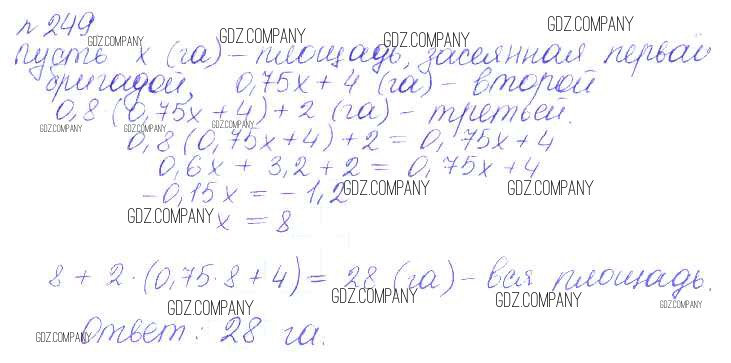 № 249
Пусть x (га) – площадь, засеянная первой
бригадой, 0,75x + 4 (га) – второй
0,8 (0,75x + 4) + 2 (га) – третьей.
0,8 (0,75x + 4) + 2 = 0,75x + 4
0,6x + 3,2 + 2 = 0,75x + 4
-0,15x = -1,2
x = 8
8 + 2·(0,75·8 + 4) = 28 (га) – вся площадь.
Ответ: 28 га.
GDZ.COMPANY
GDZ.COMPANY
GDZ.COMPANY
GDZ.COMPANY
GDZ.COMPANY
GDZ.COMPANY
GDZ.COMPANY
GDZ.COMPANY
GDZ.COMPANY
GDZ.COMPANY
GDZ.COMPANY
GDZ.COMPANY
GDZ.COMPANY
GDZ.COMPANY